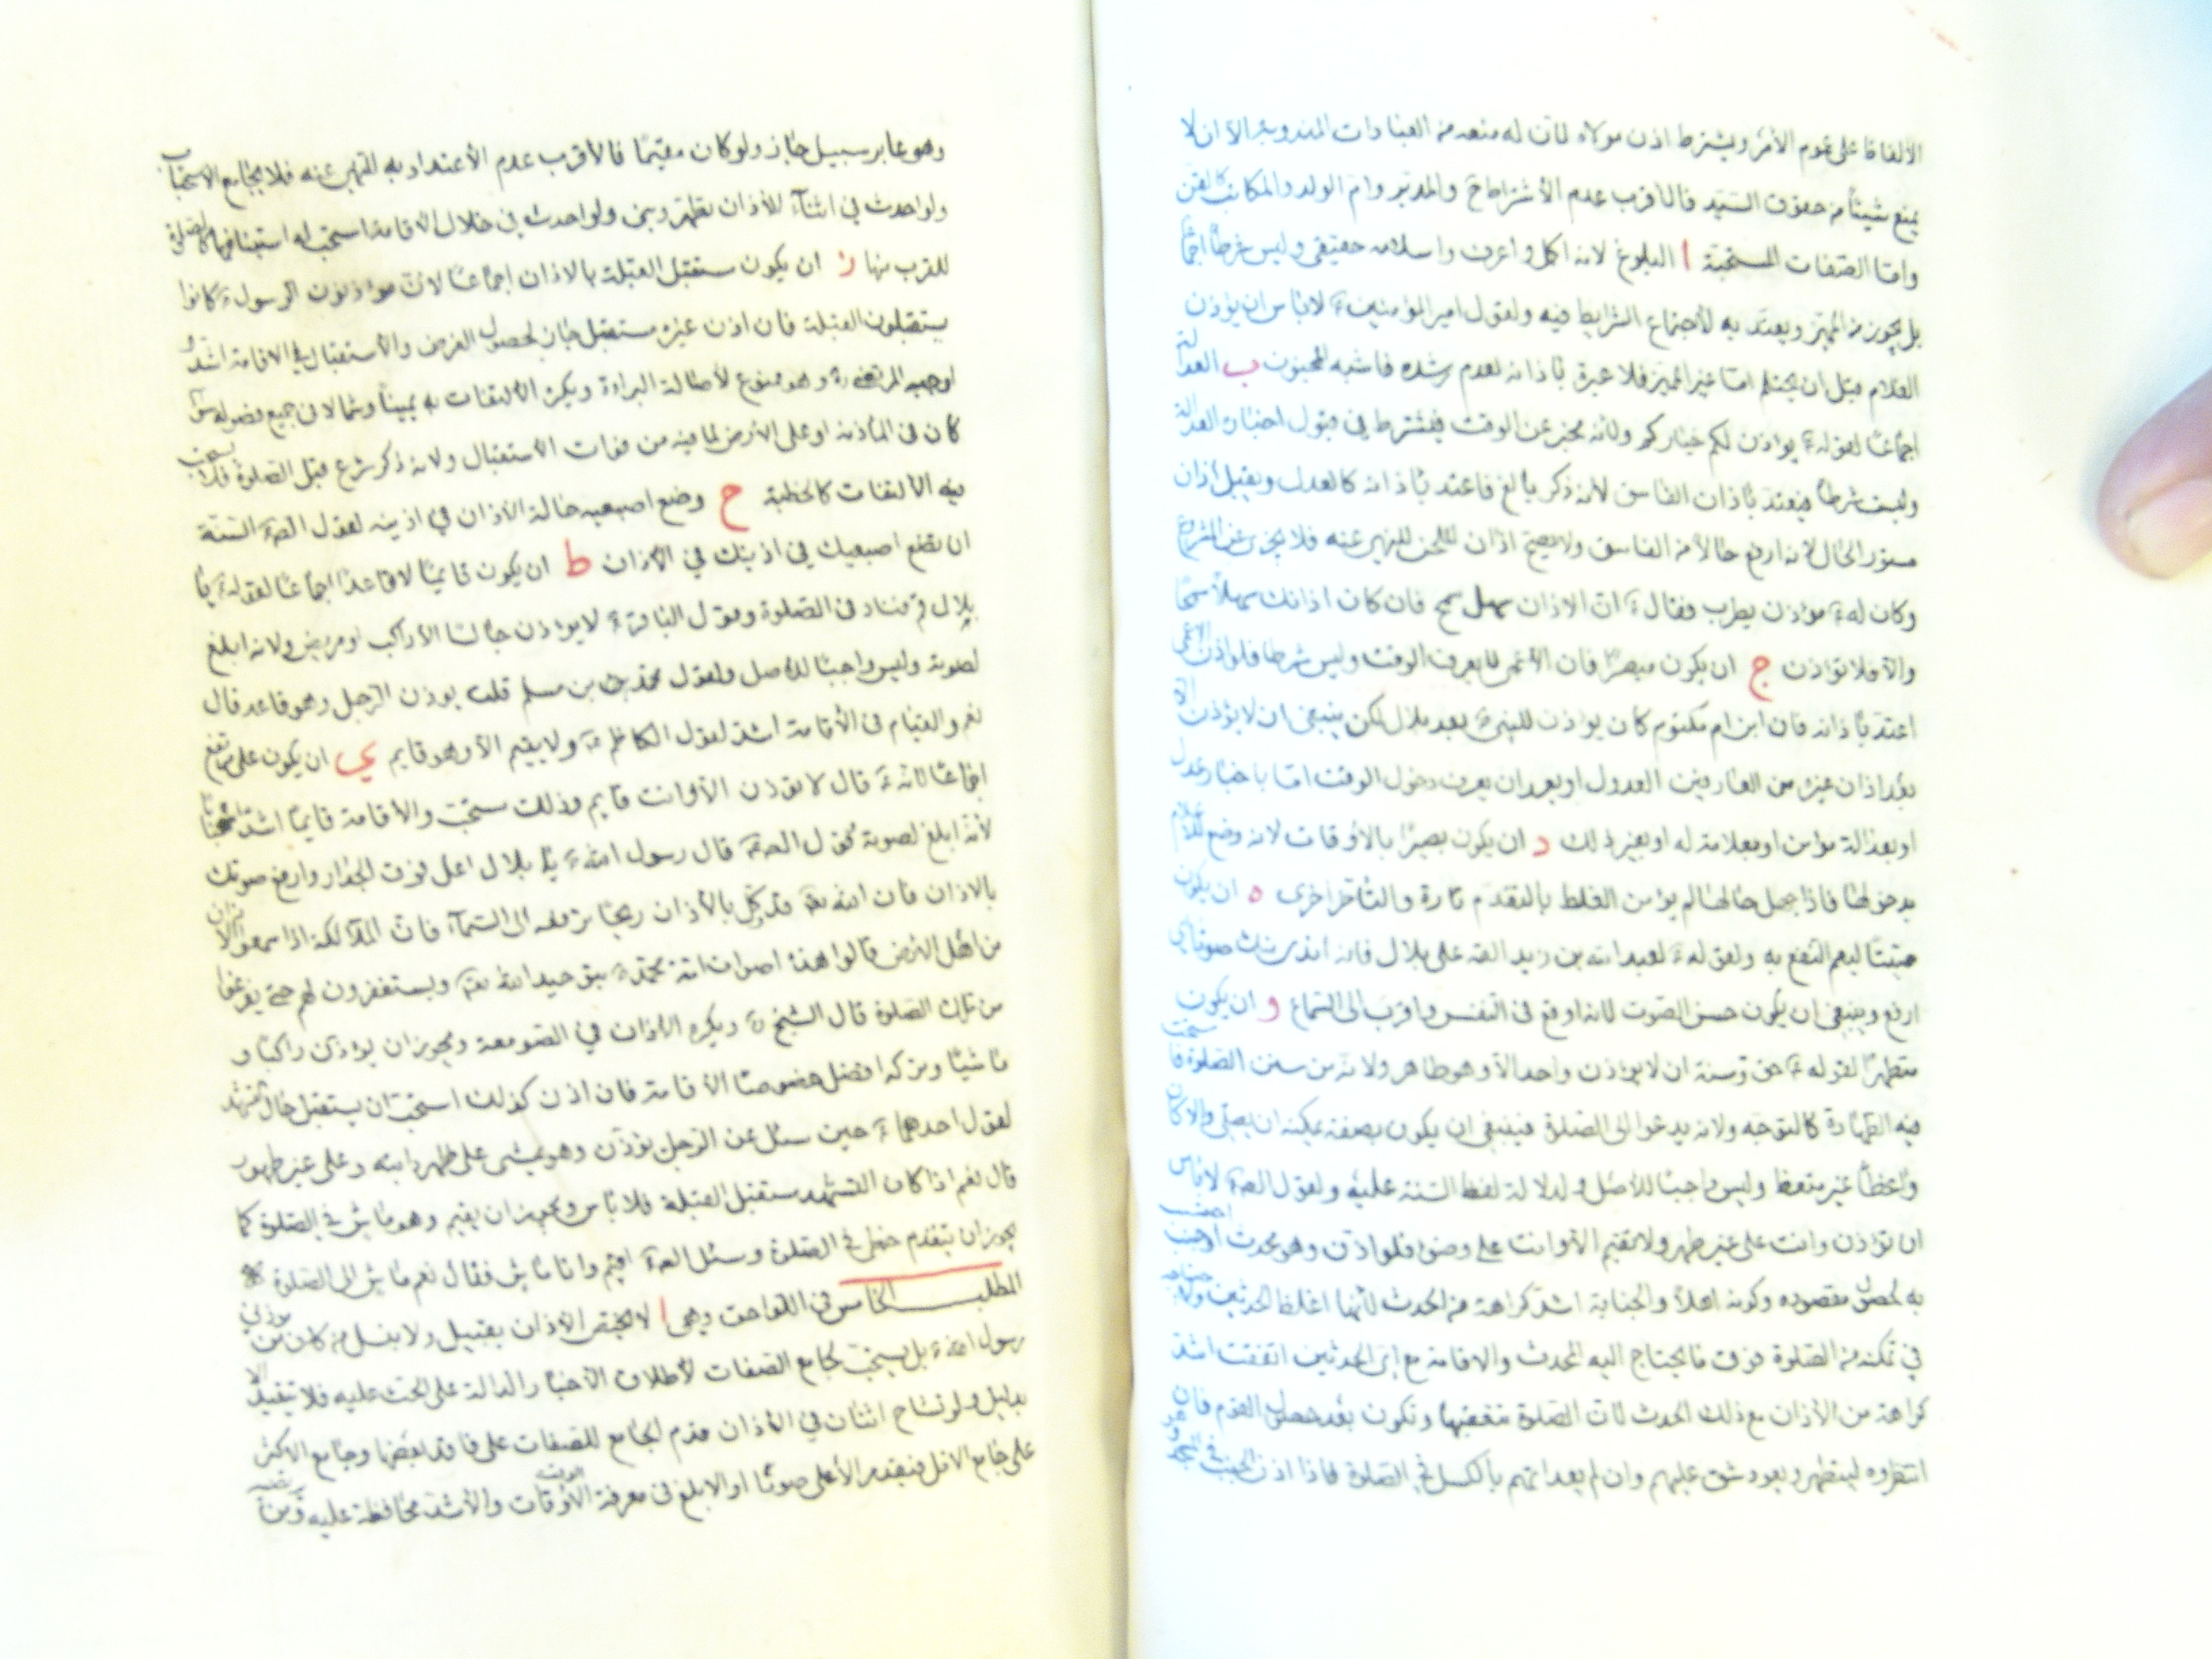 الألفاظ على عموم الأمر ويشترط اذن مولاه لأن له منعه من العبادات المندوبة الا ان لا
يمنع شيئا من حقوق السيد فالاقرب عدم الأشتراط ح والمدبر وام الولد والمكاتب كالقن
واما الصفات المستحبة ا البلوغ لانه اكمل واعرف واسلامه حقيقي وليس شرطا اجماعا
بل يجوز من المميز ويعتد به لأجتماع الشرايط فيه ولقول امير المؤمنين ع لا بأس ان يؤذن
الغلام قبل ان يحتلم اما غير المميز فلا عبرة بأذانه لعدم رشده فاشبه المجنون ب العدالة
اجماعا لقوله ع يؤذن لكم خياركم ولأنه مخبر عن الوقت فيشترط في قبول اخباره العدالة
وليست شرطا فيعتد بأذان الفاسق لأنه ذكر بالغ فاعتد بأذانه كالعدل ويقبل اذان
مستور الحال لانه ارفع حالا من الفاسق ولا يصح اذان اللاحن للنهي عنه فلا يجزي عن المشروع
وكان له ع مؤذن يطرب فقال ع ان الاذان سهل سمح فان كان اذانك سهلا سمحا
والا فلا تؤذن ج ان يكون مبصرا فان الأعمى لا يعرف الوقت وليس شرطا فلو اذن الأعمى
اعتد بأذانه فان ابن ام مكتوم كان يؤذن للنبي ع بعد بلال لكن ينبغي ان لا يؤذن الا
بعد اذان غيره من العارفين العدول او بعد ان يعرف دخول الوقت اما باخبار عدل
او بعدالة مؤمن او بعلامة له او بغير ذلك د ان يكون بصيرا بالأوقات لانه وضع للاعلام
بدخولها فاذا جهل حالها لم يؤمن الغلط بالتقدم تارة والتأخر اخرى ه ان يكون
صيتا ليعم النفع به ولقوله ع لعبد الله بن زيد القه على بلال فانه اندى منك صوتا اي
ارفع وينبغي ان يكون حسن الصوت لانه اوقع في النفس واقرب الى السماع و ان يكون
متطهرا لقوله ع حق وسنة ان لا يؤذن واحد الا وهو طاهر ولانه من سنن الصلوة فاستحب
فيه الطهارة كالتوجه ولانه يدعوا الى الصلوة فينبغي ان يكون بصفة يمكنه ان يصلي والا كان
واعظا غير متعظ وليس واجبا للأصل ولدلالة لفظ السنة عليه ولقول الص ع لا بأس
ان تؤذن وانت على غير طهر ولا تقيم الا وانت على وضوء فلو اذن وهو محدث او جنب اجتنب
به لحصول مقصوده وكونه اهلا والجنابة اشد كراهة من الحدث لأنها اغلظ الحدثين
في تمكنه من الصلوة فوق ما يحتاج اليه المحدث والاقامة مع اي الحدثين اتفقت اشد
كراهة من الأذان مع ذلك الحدث لان الصلوة تتعقبها وتكون بعد حصول القوم فان
انتظروه ليتطهر ويعود شق عليهم وان لم يعد اتهم بالكسل في الصلوة فاذا اذن الجنب في المسجد
وهو عابر سبيل جاز ولو كان مقيما فالأقرب عدم الأعتداد به للنهي عنه فلا يجامع الاستحباب
ولو احدث في اثناء الأذان تطهر وبنى ولو احدث في خلال الاقامة استحب له استينافها كالصلوة
للقرب منها ز ان يكون مستقبل القبلة بالاذان اجماعا لان مؤذنون الرسول ع كانوا
يستقبلون القبلة فان اذن غير مستقبل جاز لحصول الغرض والاستقبال في الاقامة اشد و
اوجبه المرتضى ره وهو ممنوع لأصالة البراءة ويكره الالتفات به يمينا وشمالا في جميع فصوله سواء
كان في المأذنة او على الارض لما فيه من فوات الاستقبال ولانه ذكر شرع قبل الصلوة فلا يستحب
فيه الالتفات كالخطبة ح وضع اصبعيه حالة الأذان في اذنيه لقول الص ع السنة
ان تضع اصبعيك في اذنيك في الأذان ط ان يكون قائما لا قاعدا اجماعا لقوله ع يا
بلال قم فناد في الصلوة وقول الباقر ع لا يؤذن جالسا الا راكب او مريض ولانه ابلغ
لصوته وليس واجبا للأصل ولقول محمد بن مسلم قلت يؤذن الرجل وهو قاعد قال
نعم والقيام في الأقامة اشد لقول الكاظم ع ولا يقيم الا وهو قايم ي ان يكون على مرتفع
اجماعا لانه ع قال لا تؤذن الا وانت قايم وذلك مستحب والأقامة قايما اشد استحبابا
لأنه ابلغ لصوته كقول الص ع قال رسول الله ع يا بلال اعل فوق الجدار وارفع صوتك
بالاذان فان الله تع قد وكل بالأذان ريحا ترفعه الى السماء فان الملائكة اذا سمعوا الاذان
من اهل الارض قالوا هذه اصوات امة محمد ع بتوحيد الله تع ويستغفرون لهم حتى يفرغوا
من تلك الصلوة قال الشيخ ره ويكره الأذان في الصومعة ويجوز ان يؤذن راكبا و
ماشيا وتركه افضل خصوصا الأقامة فان اذن كذلك استحب ان يستقبل حال تشهده
لقول احدهما ع حين سئل عن الرجل يؤذن وهو يمشي على ظهر دابته وعلى غير طهور
قال نعم اذا كان التشهد مستقبل القبلة فلا بأس ويجوز ان يقيم وهو ماش في الصلوة كما
يجوز ان يتقدم حتى في الصلوة وسئل الص ع اقيم وانا ماش فقال نعم ماش الى الصلوة
المطلب الخامس في اللواحق وهي ا لا يختص الأذان بقبيل ولا بنسل من كان من مؤذني
رسول الله ع بل يستحب لجامع الصفات لأطلاق الأخبار الدالة على الحث عليه فلا تقييد الا
بدليل ولو تشاح اثنان في الأذان قدم الجامع للصفات على فاقد بعضها وجامع الاكثر
على جامع الاقل فيقدم الأعلى صوتا او الابلغ في معرفة الأوقات والأشد محافظة عليه ومن